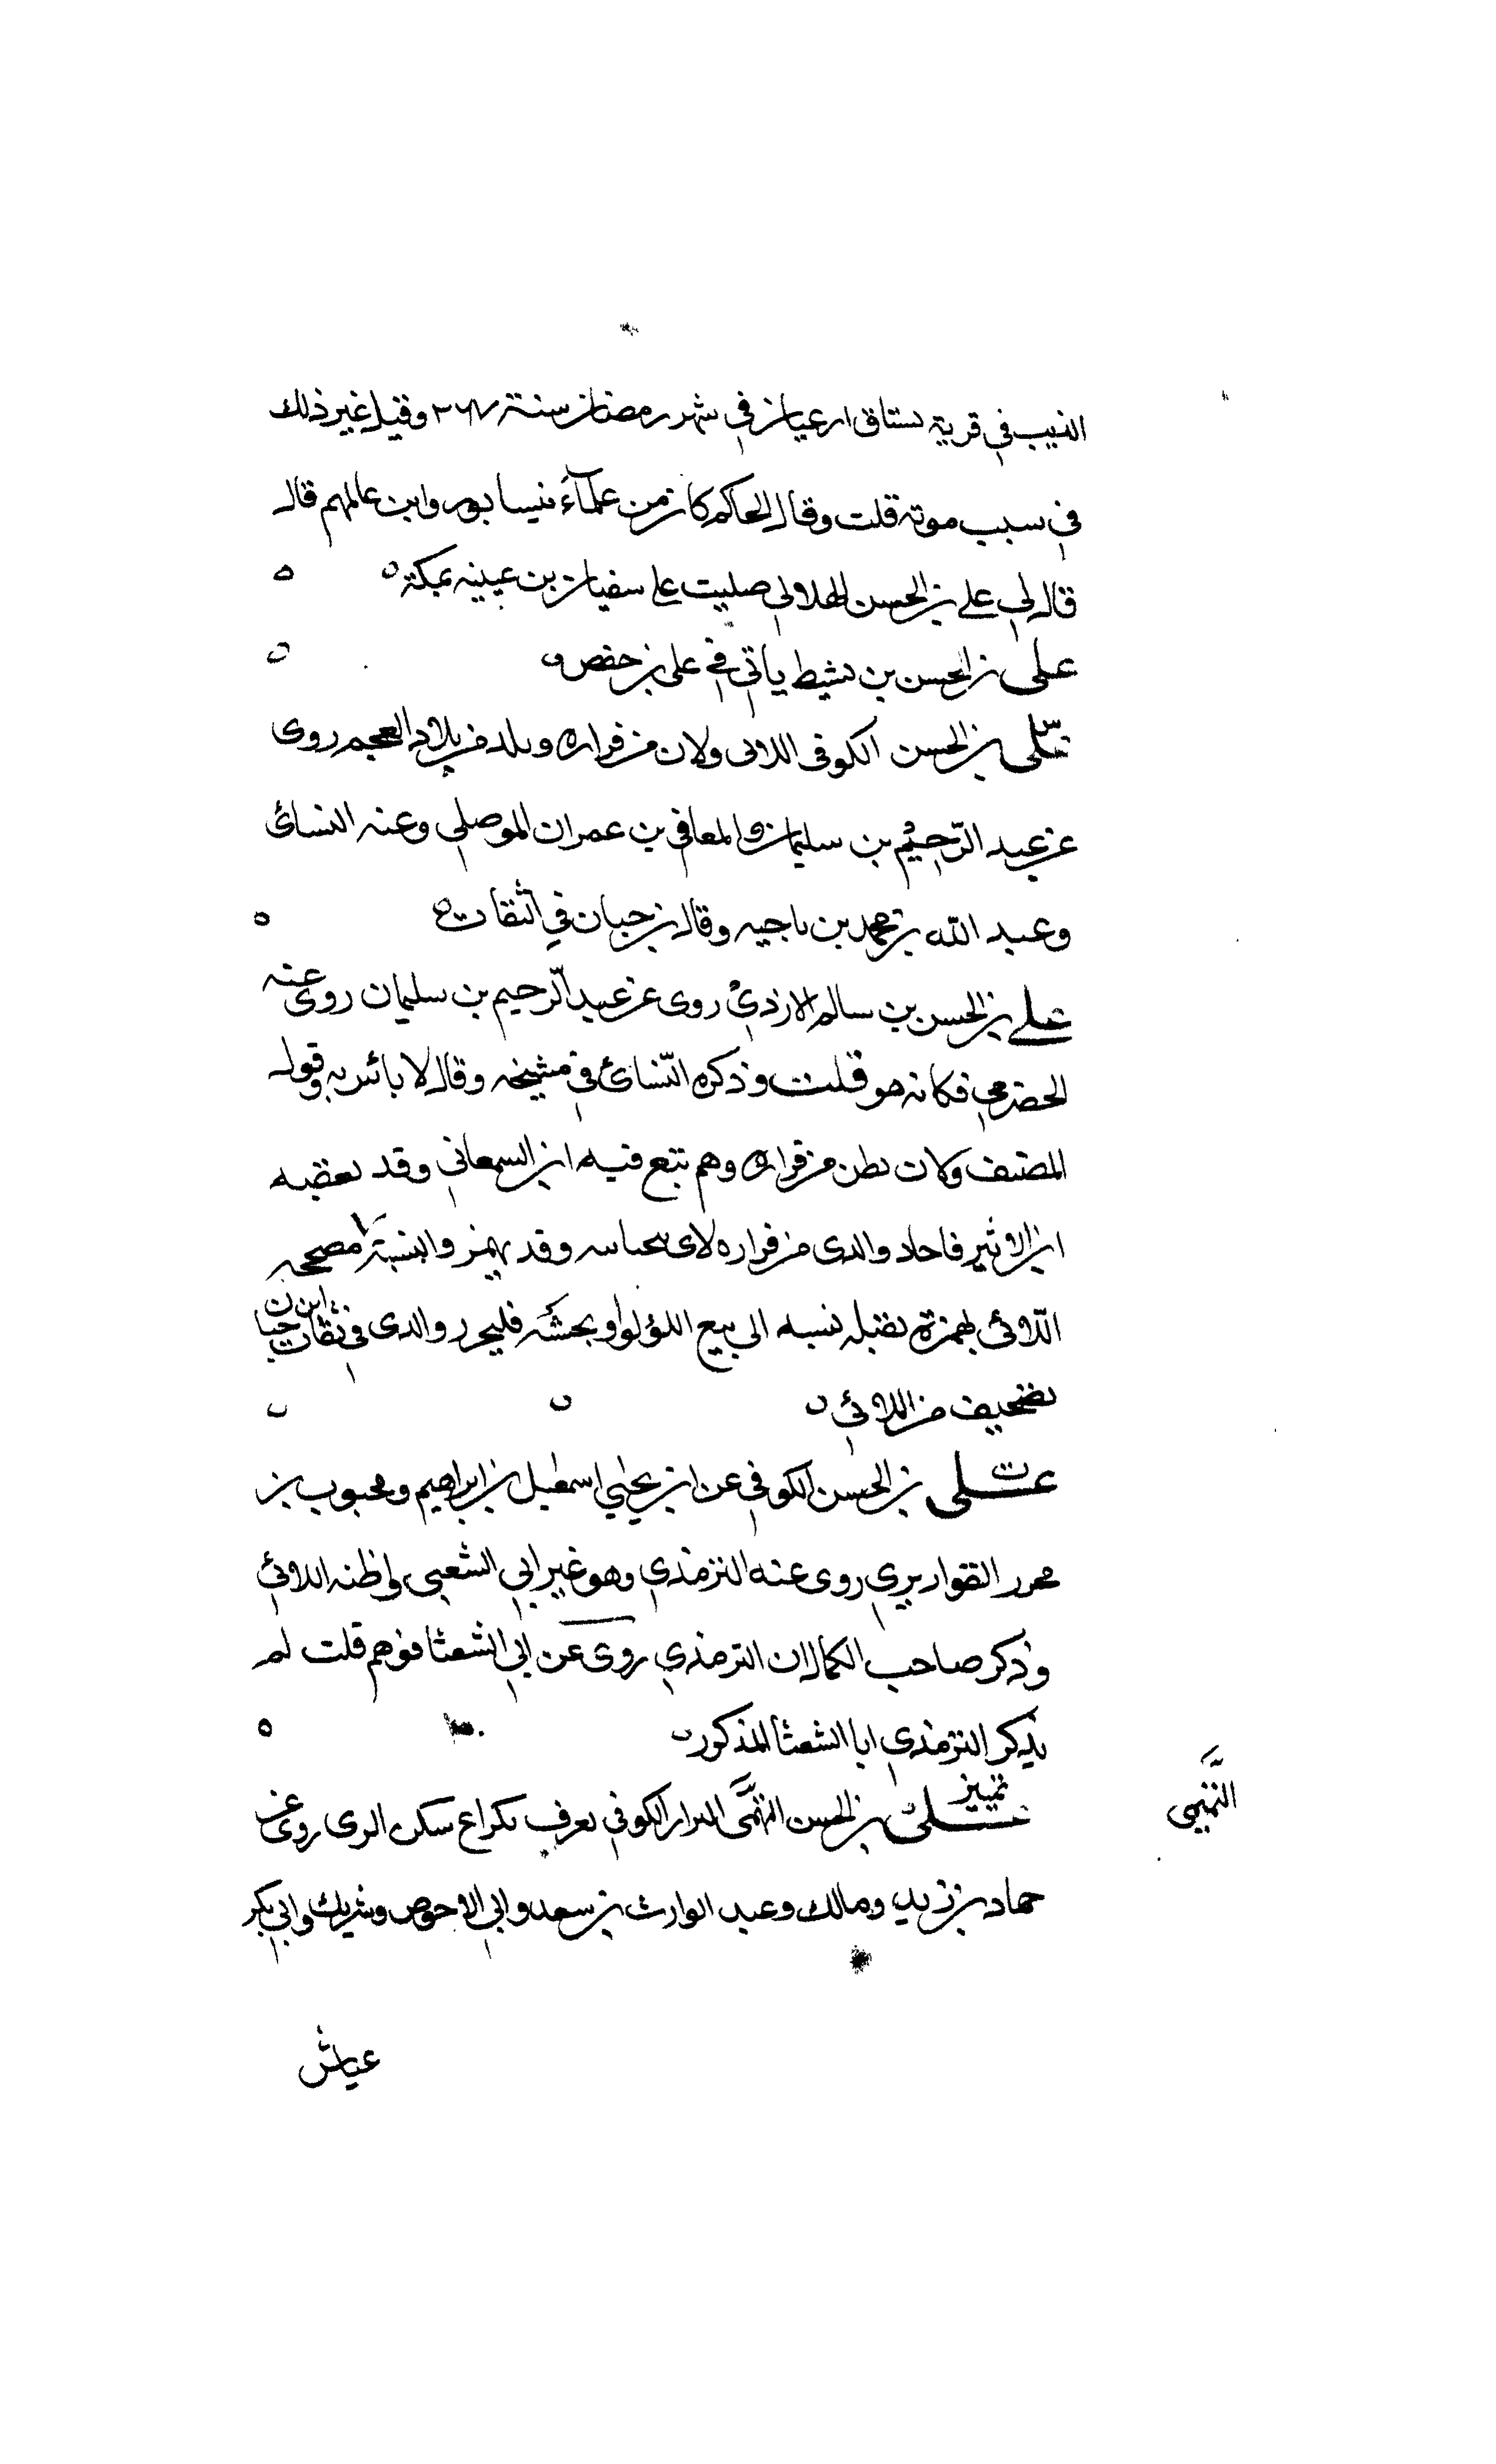 الذيب في قرية بستاق ارعيان في شهر رمضان سنة ٢٦٧ وقيل غير ذلك
في سبب موته قلت وقال الحاكم كان من علماء نيسابور وابن عالمهم قال
قال لي علي بن الحسن الهلالي صليت على سفيان بن عيينه بمكة
على بن الحسن بن نشيط ياتي في على بن حفص
على بن الحسن الكوفى اللانى ولان من فزاره وبلد من بلاد العجم روى
عن عبد الرحيم بن سليمان والمعافى بن عمران الموصلي وعنه النسائى
وعبد الله بن محمد بن ناجيه وقال بن حبان في الثقات
على بن الحسن بن سالم الازدي روى عن عبد الرحيم بن سليمان روى عنه
الحضرمي فكانه هو قلت وذكره النسائى في مشيخته وقال لا بائس به وقول
المصنف ولان بطن من فزاره وهم تبع فيه ابن السمعاني وقد تعقبه
ابن الاثير فاجاد والذى من فزاره لاى وقد يهمز والنسبة
اللائى بهمزة نسبه الى بيع اللؤلؤ فليحرر والذى في ثقات ابن حبان
تصحيف من اللائي
على بن الحسن الكوفي عن ابن يحيى اسمعيل بن ابراهيم ومحبوب بن
محرر القواريري روى عنه الترمذي وهو غير ابي الشعبي واظنه اللائي
وذكر صاحب الكمال ان الترمذي روى عن ابي الشعثا فوهم قلت لم
يذكر الترمذي ابا الشعثا المذكور
تمييز
على بن الحسن التميمى البزار الكوفي يعرف بكراع سكن الرى روى عن
التميمى
حماد بن زيد ومالك وعبد الوارث بن سعد وابي الاحوص وشريك وابي بكر
عياش